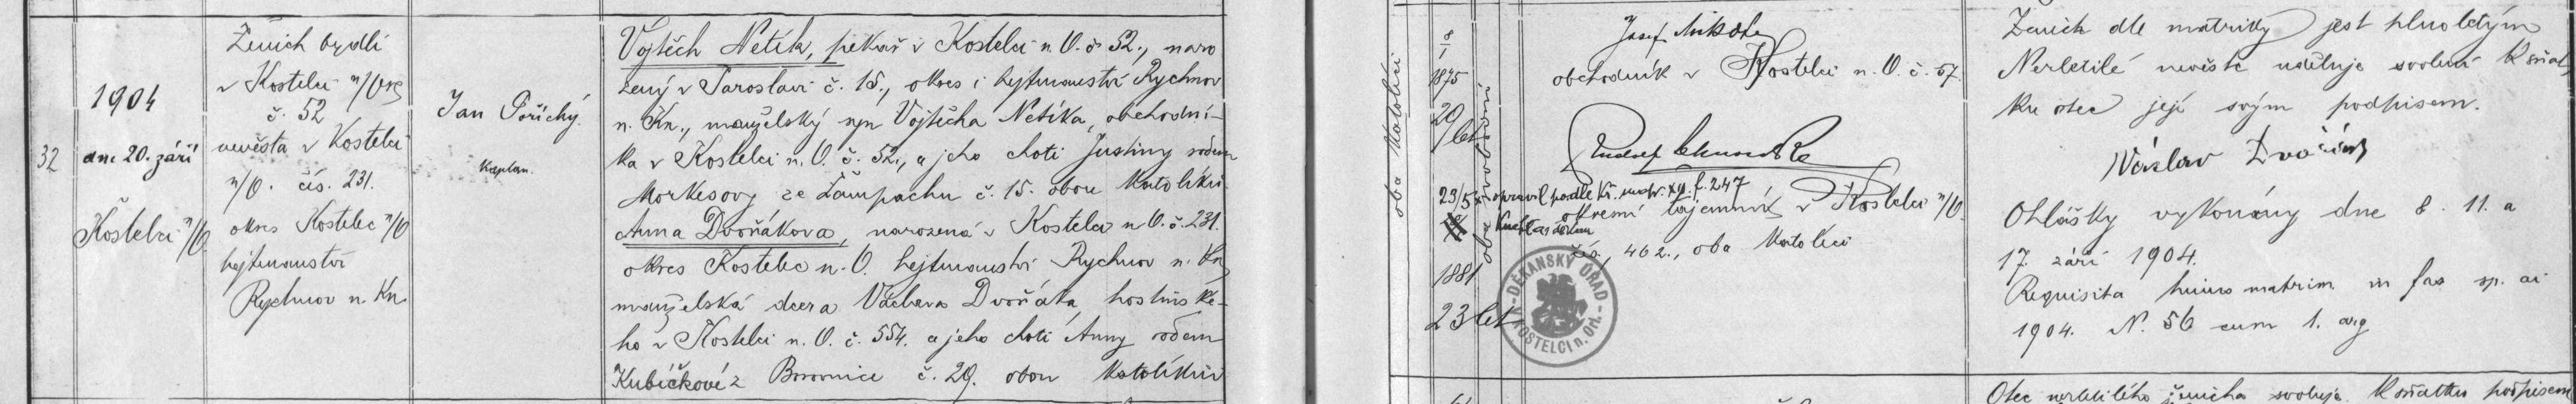 32
1904
dne 20. září
Kostelci n/O.
Ženich bydlí
v Kostelci n/Orl
č. 52
nevěsta v Kostelci
n/O. čís. 231.
okres Kostelec n/O
hejtmanství
Rychnov n. Kn.
Jan Poříčký.
Kaplan.
Vojtěch Netík, pekař v Kostelci n. O. č. 52., naro
zený v Jaroslavi č. 15., okres i hejtmanství Rychnov
n. Kn., manželský syn Vojtěcha Netíka, obchodní-
ka v Kostelci n. O. č. 52., a jeho choti Justiny rodem
Morkesovy ze Žampachu č. 15. obou katolíků
Anna Dvořákova, narozená v Kostelci n O. č. 231.
okres Kostelec n. O. hejtmanství Rychnov n. Kn
manželská dcera Václava Dvořáka, hostinské-
ho v Kostelci n. O. č. 554. a jeho choti Anny rodem
Kubíčkové z Borovnice č. 29. obou katolíků
oba katolíci
8
1
1875
29
let
23/5
1881
23 let
oba svobodni
Josef Mikše
obchodník v Kostelci n. O. č. 57.
Rudolf
opravil podle kř. matr. f. 247
okresní tajemník v Kostelci n/O.
čís. 462., oba katolíci
DĚKANSKÝ ÚŘAD
V KOSTELCI n. Orl.
Ženich dle matriky jest plnoletým
Nezletilé nevěstě uděluje svolení k sňat
ku otec její svým podpisem.
Václav Dvořák
Ohlášky vykonány dne 8. 11. a
17. září 1904.
Requisita huius matrim in fas sp. ai
1904. N. 56 cum 1. avg
Otec nezletilého ženicha svoluje k sňatku podpisem